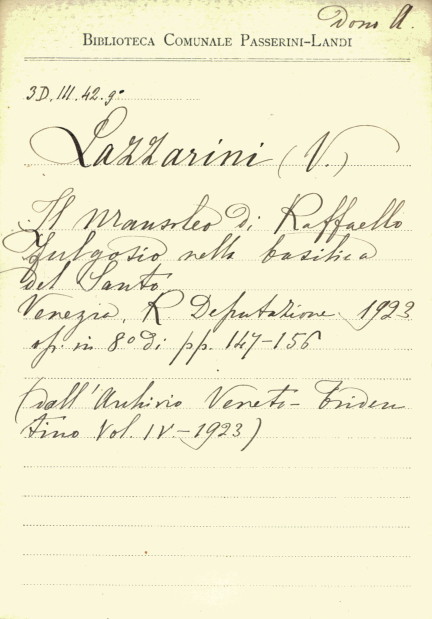 Dono A.
BIBLIOTECA COMUNALE PASSERINI-LANDI
3D.III.42.9°
Lazzarini (V.)
Il mausoleo di Raffaello
Fulgosio nella basilica
del Santo
Venezia, R. Deputazione 1923
op. in 8° di pp. 147-156
(dall'Archivio Veneto-Triden
tino Vol. IV-1923)